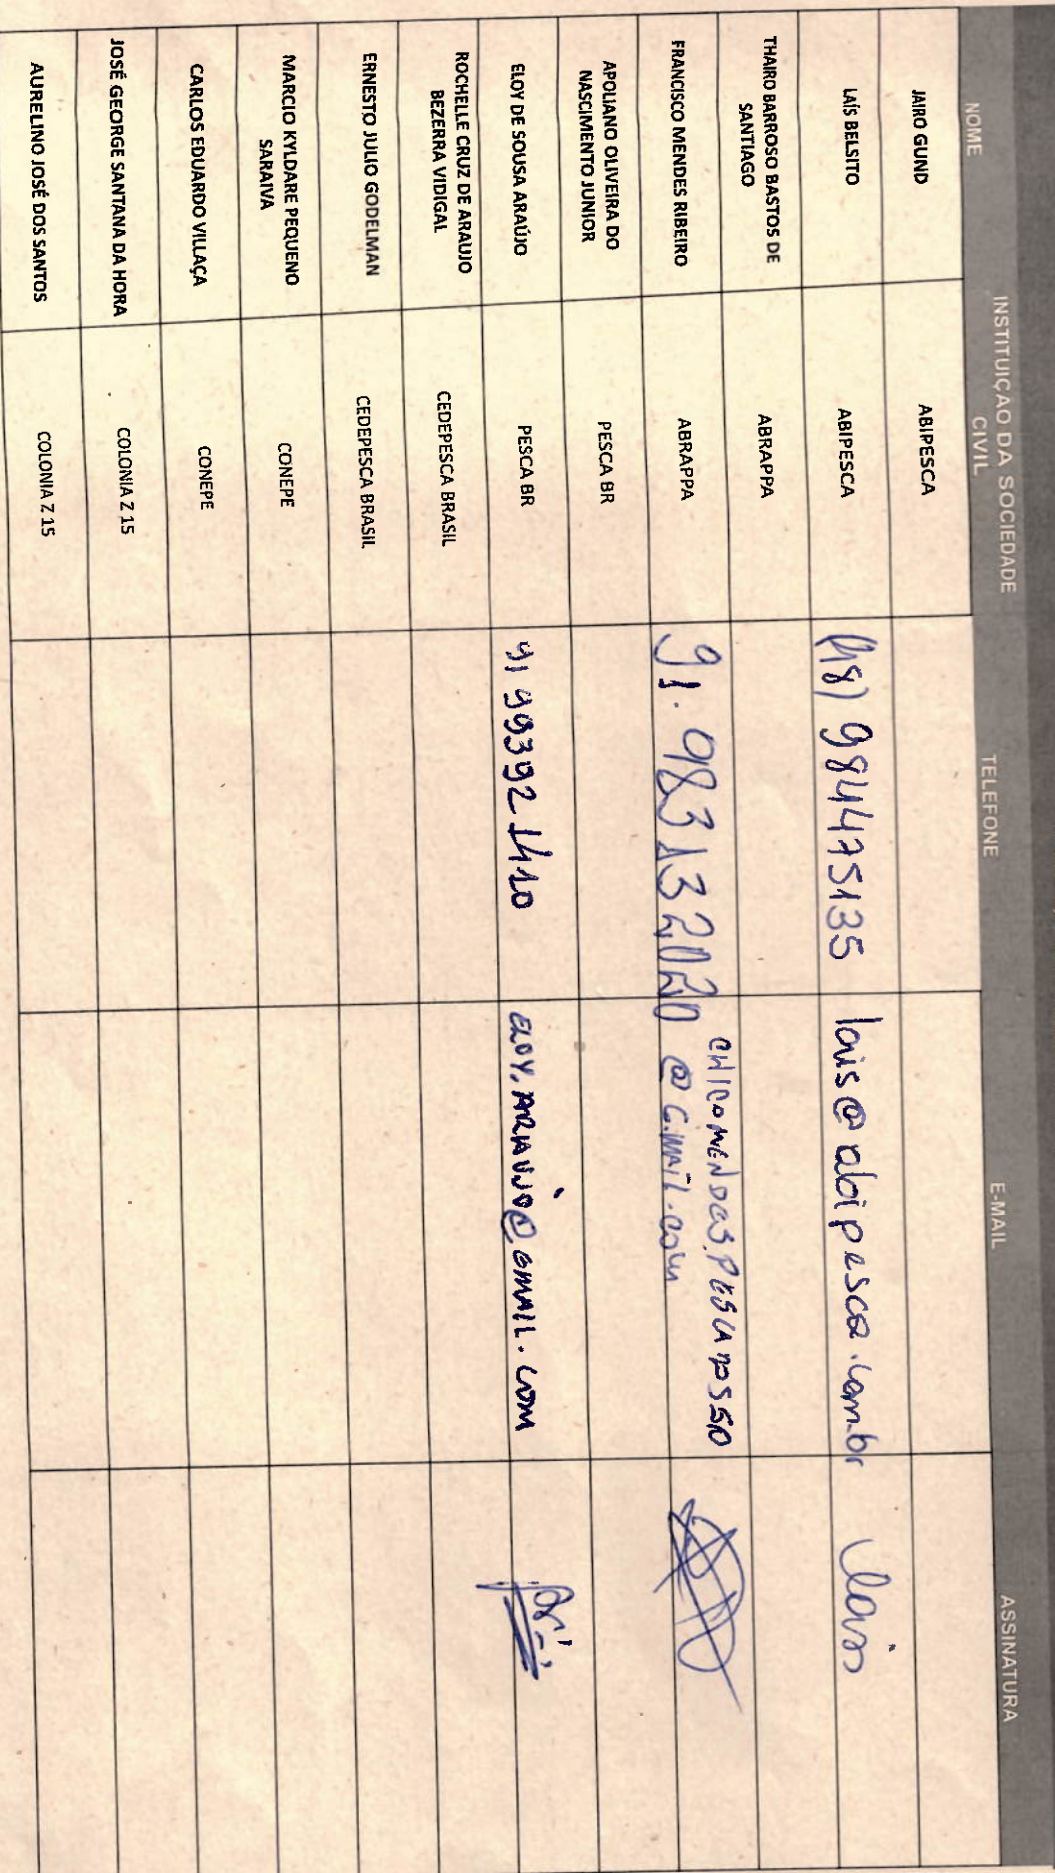 NOME INSTITUIÇAO DA SOCIEDADE CIVIL TELEFONE E-MAIL ASSINATURA
JAIRO GUND ABIPESCA
LAÍS BELSITO ABIPESCA (48) 984475135 lais@abipesca.com.br Lais
THAIRO BARROSO BASTOS DE SANTIAGO ABRAPPA
FRANCISCO MENDES RIBEIRO ABRAPPA 91.983132020 @G.mail.com
APOLIANO OLIVEIRA DO NASCIMENTO JUNIOR PESCA BR
ELOY DE SOUSA ARAÚJO PESCA BR 91 993921410 ELOY.ARAUJO@GMAIL.COM
ROCHELLE CRUZ DE ARAUJO BEZERRA VIDIGAL CEDEPESCA BRASIL
ERNESTO JULIO GODELMAN CEDEPESCA BRASIL
MARCIO KYLDARE PEQUENO SARAIVA CONEPE
CARLOS EDUARDO VILLAÇA CONEPE
JOSÉ GEORGE SANTANA DA HORA COLONIA Z 15
AURELINO JOSÉ DOS SANTOS COLONIA Z 15